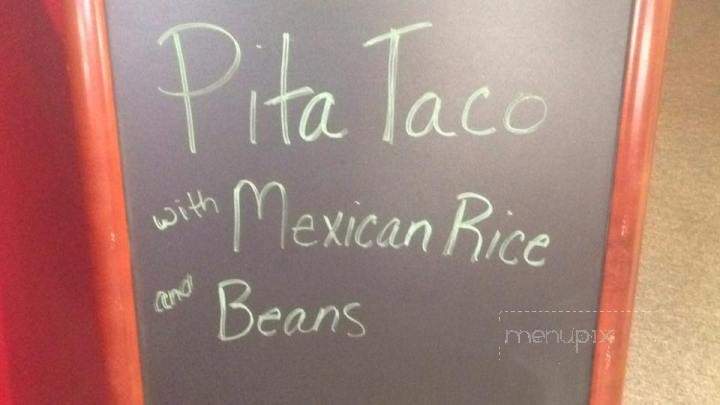 Pita Taco
with Mexican Rice
and Beans
menupix